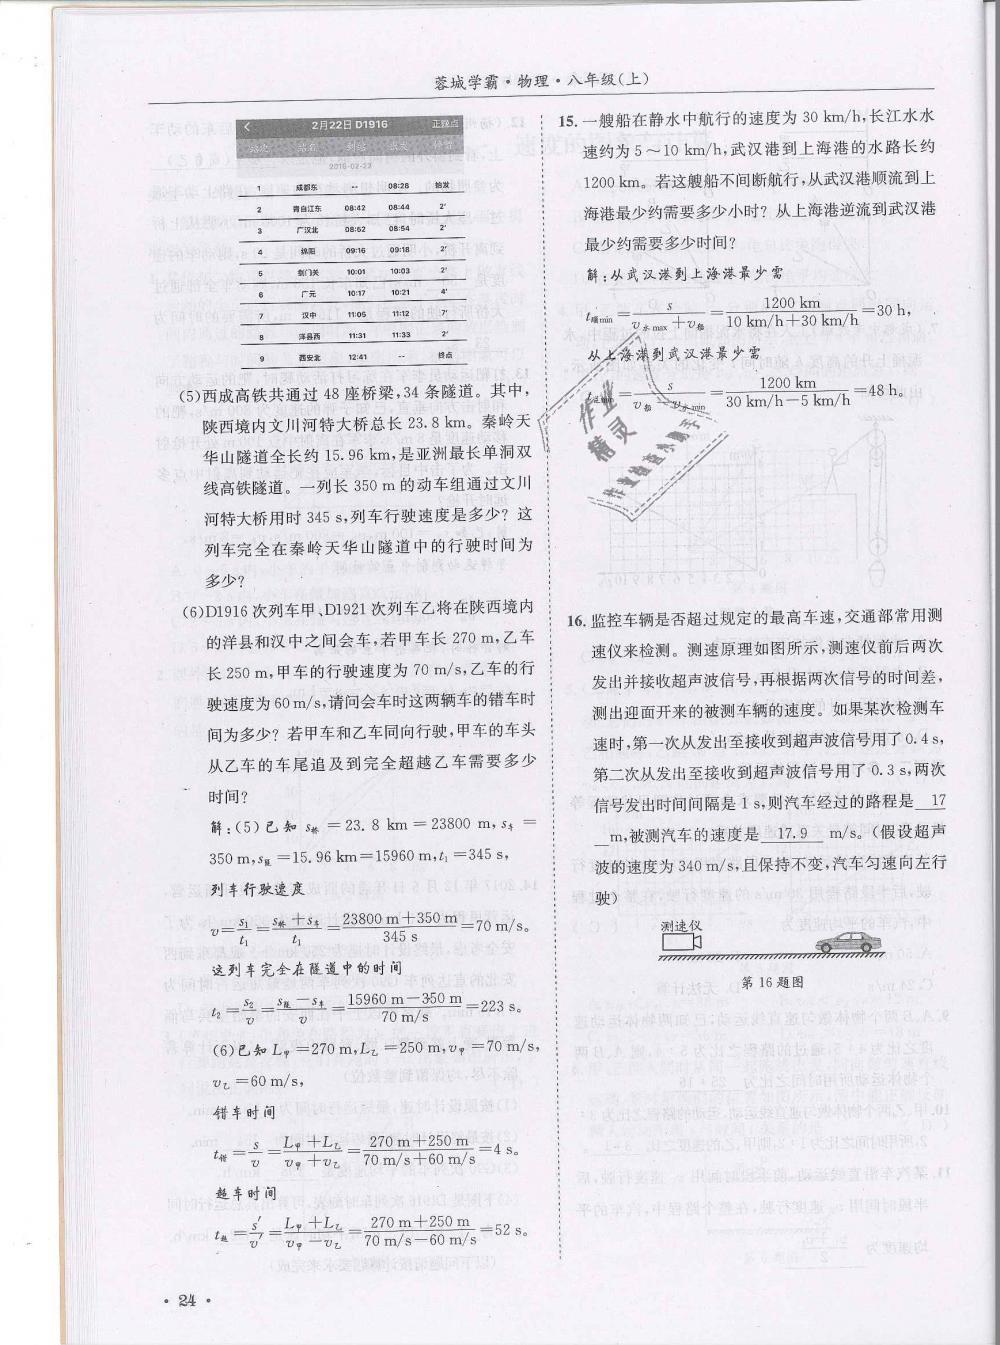 蓉城学霸·物理·八年级(上)
2月22日 D1916 正晚点
站次 站名 到站 发车 停留
2016-02-23
1 成都东 -- 08:28 始发
2 青白江东 08:42 08:44 2'
3 广汉北 08:52 08:54 2'
4 绵阳 09:16 09:18 2'
5 剑门关 10:01 10:03 2'
6 广元 10:17 10:21 4'
7 汉中 11:05 11:12 7'
8 洋县西 11:31 11:33 2'
9 西安北 12:41 -- 终点
(5)西成高铁共通过 48 座桥梁,34 条隧道。其中,
陕西境内文川河特大桥总长 23.8 km。秦岭天
华山隧道全长约 15.96 km,是亚洲最长单洞双
线高铁隧道。一列长 350 m 的动车组通过文川
河特大桥用时 345 s,列车行驶速度是多少？这
列车完全在秦岭天华山隧道中的行驶时间为
多少？
(6)D1916 次列车甲、D1921 次列车乙将在陕西境内
的洋县和汉中之间会车,若甲车长 270 m,乙车
长 250 m,甲车的行驶速度为 70 m/s,乙车的行
驶速度为 60 m/s,请问会车时这两辆车的错车时
间为多少？若甲车和乙车同向行驶,甲车的车头
从乙车的车尾追及到完全超越乙车需要多少
时间？
解:(5)已知 s桥 =23.8 km=23800 m,s车 =
350 m,s隧 =15.96 km=15960 m,t₁ =345 s,
列车行驶速度
v=s₁/t₁=(s桥+s车)/t₁=(23800 m+350 m)/345 s=70 m/s。
这列车完全在隧道中的时间
t₂=s₂/v=(s隧-s车)/v=(15960 m-350 m)/70 m/s=223 s。
(6)已知 L甲 =270 m,L乙 =250 m,v甲 =70 m/s,
v乙 =60 m/s,
错车时间
t错=s/v=(L甲+L乙)/(v甲+v乙)=(270 m+250 m)/(70 m/s+60 m/s)=4 s。
超车时间
t超=s'/v'=(L甲+L乙)/(v甲-v乙)=(270 m+250 m)/(70 m/s-60 m/s)=52 s。
15. 一艘船在静水中航行的速度为 30 km/h,长江水水
速约为 5～10 km/h,武汉港到上海港的水路长约
1200 km。若这艘船不间断航行,从武汉港顺流到上
海港最少约需要多少小时？从上海港逆流到武汉港
最少约需要多少时间？
解:从武汉港到上海港最少需
t顺min=s/(v水max+v船)=1200 km/(10 km/h+30 km/h)=30 h,
从上海港到武汉港最少需
s/(v船-v水min)=1200 km/(30 km/h-5 km/h)=48 h。
作业
精灵
作业检查小助手
16. 监控车辆是否超过规定的最高车速,交通部常用测
速仪来检测。测速原理如图所示,测速仪前后两次
发出并接收超声波信号,再根据两次信号的时间差,
测出迎面开来的被测车辆的速度。如果某次检测车
速时,第一次从发出至接收到超声波信号用了 0.4 s,
第二次从发出至接收到超声波信号用了 0.3 s,两次
信号发出时间间隔是 1 s,则汽车经过的路程是 17
m,被测汽车的速度是 17.9 m/s。(假设超声
波的速度为 340 m/s,且保持不变,汽车匀速向左行
驶)
测速仪
第 16 题图
· 24 ·